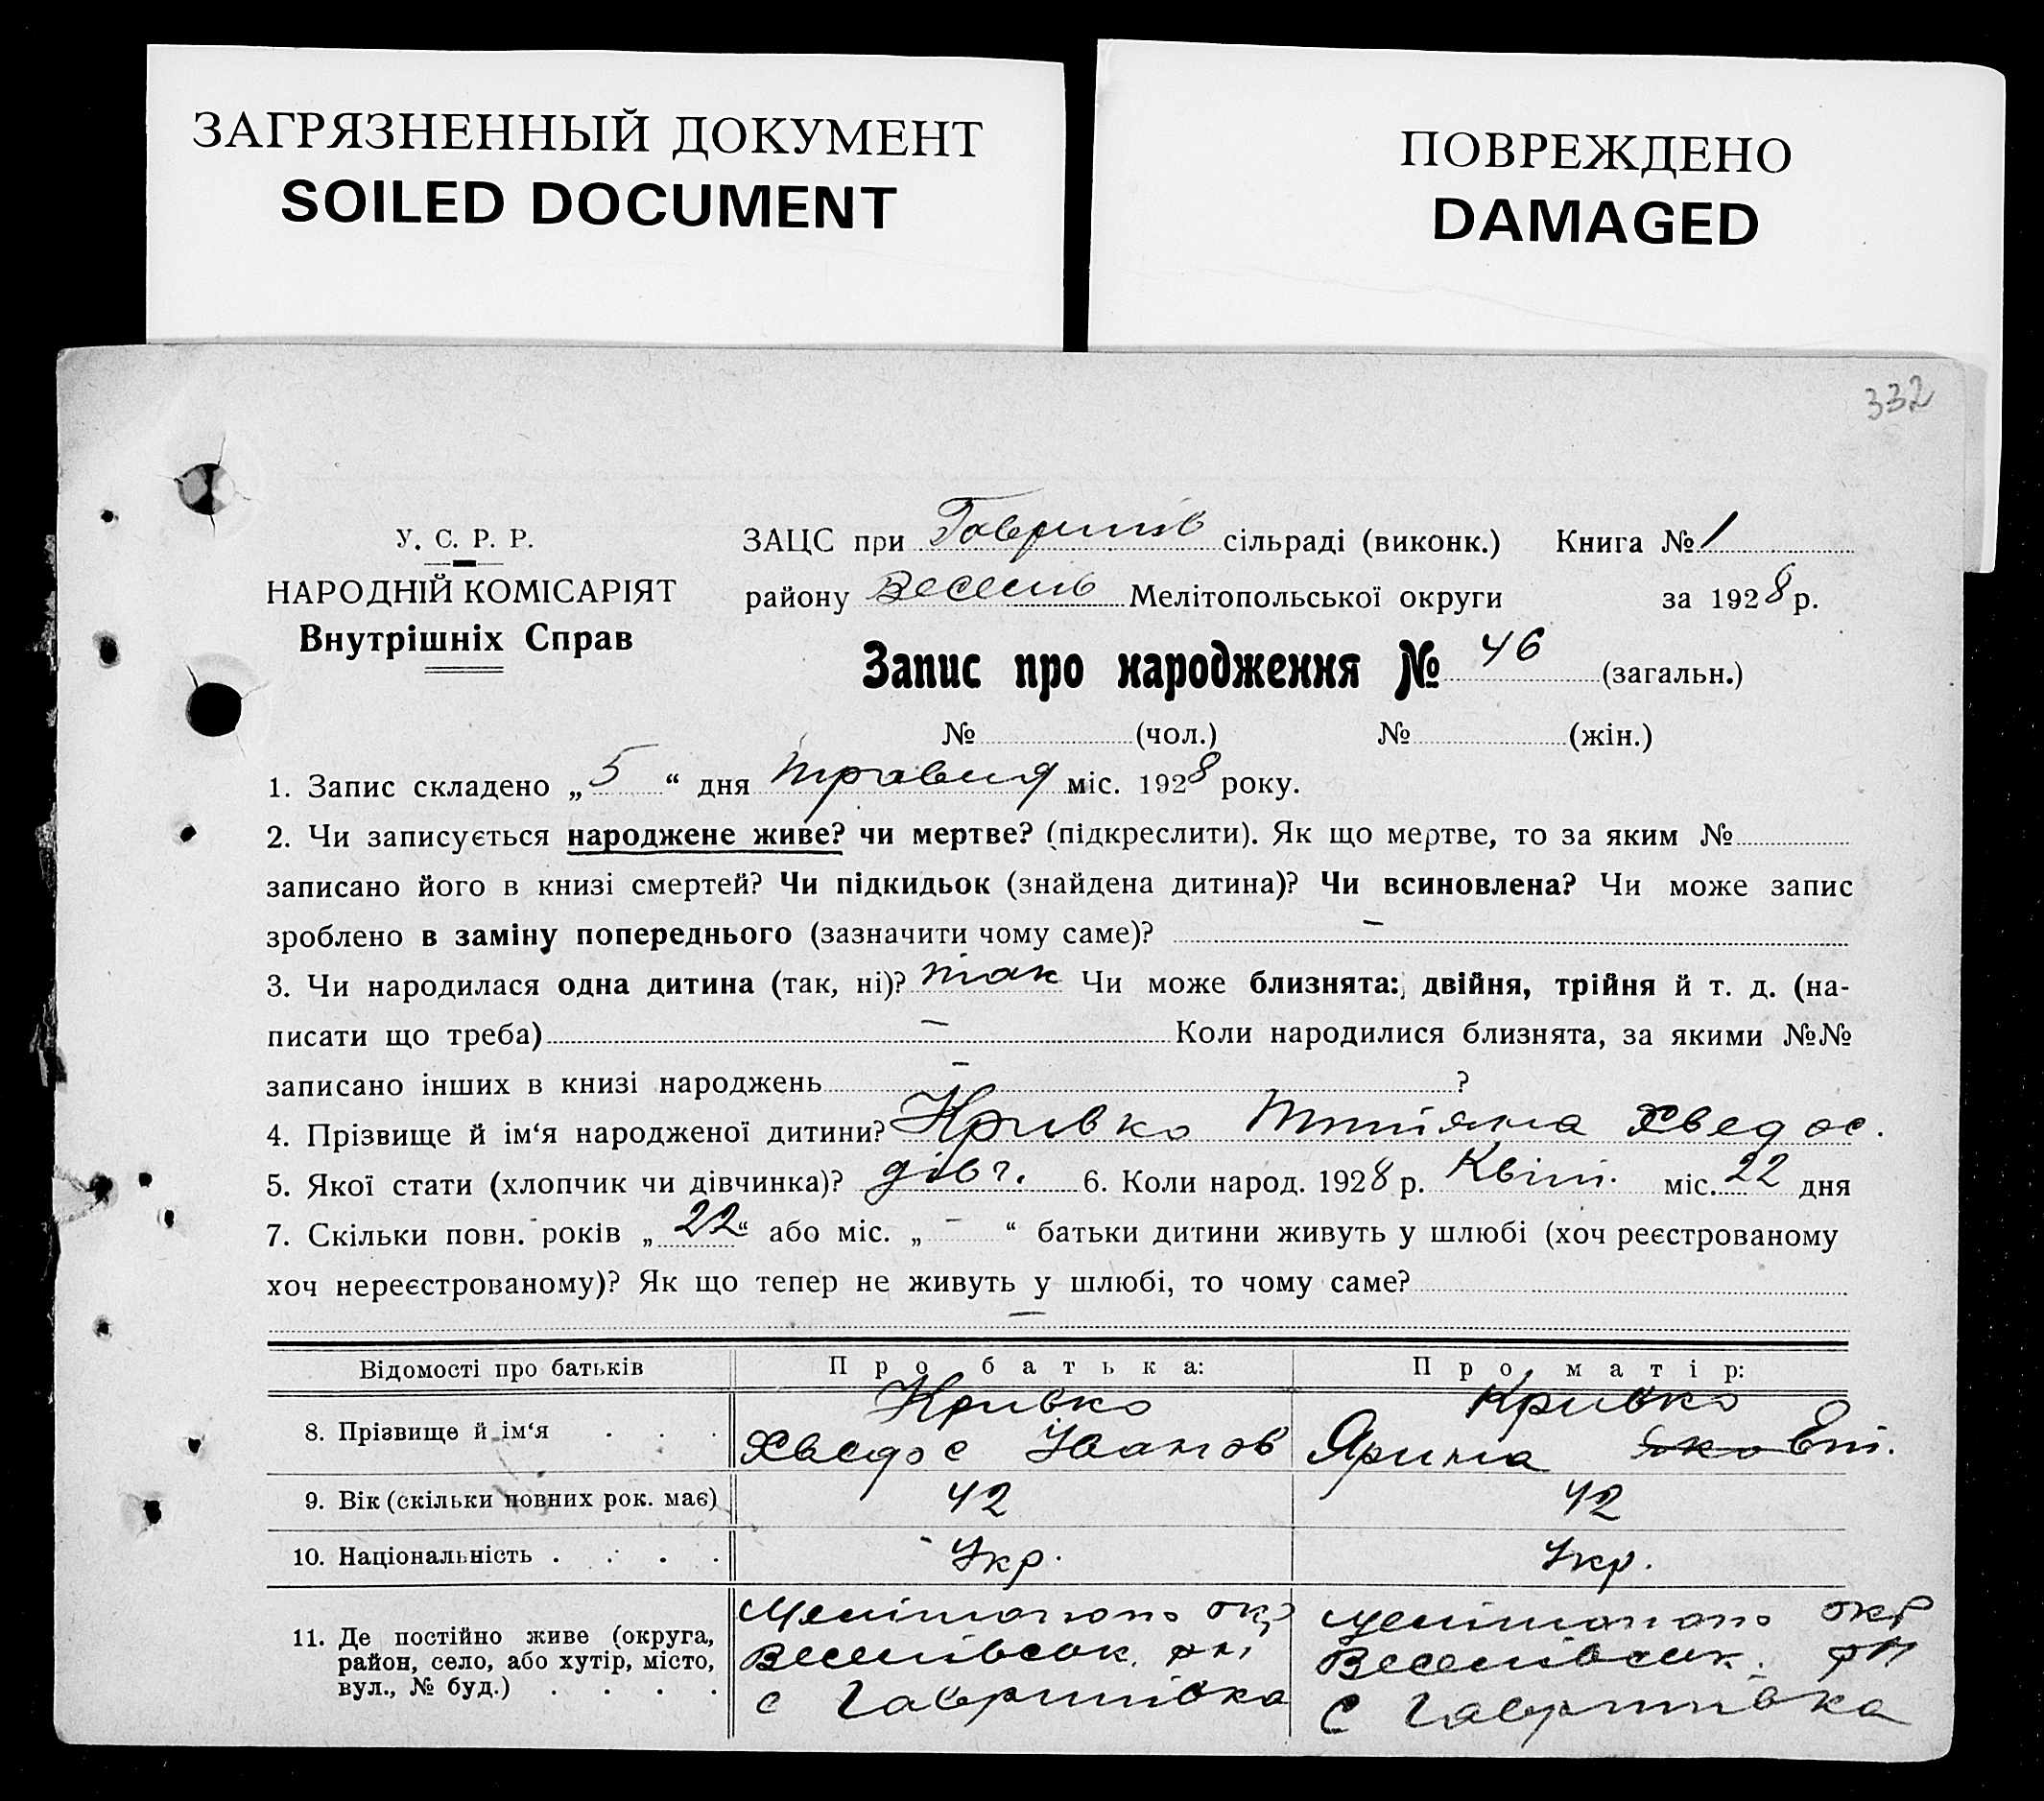 ЗАГРЯЗНЕННЫЙ ДОКУМЕНТ
SOILED DOCUMENT
ПОВРЕЖДЕНО
DAMAGED
332
У. С. Р. Р.
НАРОДНІЙ КОМІСАРІЯТ
Внутрішніх Справ
ЗАЦС при Гаврилів сільраді (виконк.) Книга № 1
району Веселів Мелітопольської округи за 1928 р.
Запис про народження № 46 (загальн.)
№ (чол.) № (жін.)
1. Запис складено „ 5 “ дня травня міс. 1928 року.
2. Чи записується народжене живе? чи мертве? (підкреслити). Як що мертве, то за яким №
записано його в книзі смертей? Чи підкидьок (знайдена дитина)? Чи всиновлена? Чи може запис
зроблено в заміну попереднього (зазначити чому саме)? —
3. Чи народилася одна дитина (так, ні)? так Чи може близнята: двійня, трійня й т. д. (на-
писати що треба) — Коли народилися близнята, за якими №№
записано інших в книзі народжень — ?
4. Прізвище й ім‘я народженої дитини? Кривко Тетіяна Хведос.
5. Якої стати (хлопчик чи дівчинка)? дівч. 6. Коли народ. 1928 р. Квіт. міс. 22 дня
7. Скільки повн. років „ 22 “ або міс. „ — “ батьки дитини живуть у шлюбі (хоч реєстрованому
хоч нереєстрованому)? Як що тепер не живуть у шлюбі, то чому саме?
—
Відомості про батьків Про батька: Про матір:
8. Прізвище й ім‘я . . . Кривко Кривко
Хведос Іванов Ярина Єпі.
9. Вік (скільки повних рок. має) 42 42
10. Національність . . . . Укр. Укр.
11. Де постійно живе (округа,
район, село, або хутір, місто,
вул., № буд.) . . . .
Мелітополь окр
Веселівськ. рн,
с Гаврилівка
Мелітополь окр
Веселівськ. рн
с Гаврилівка